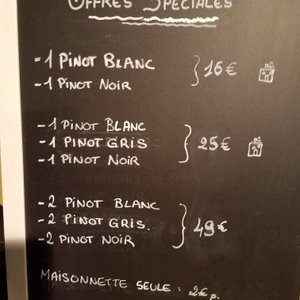 OFFRES SPÉCIALES
- 1 PINOT BLANC
- 1 PINOT NOIR
16€
- 1 PINOT BLANC
- 1 PINOT GRIS
- 1 PINOT NOIR
25€
- 2 PINOT BLANC
- 2 PINOT GRIS.
- 2 PINOT NOIR
49€
MAISONNETTE SEULE : 2€ p.